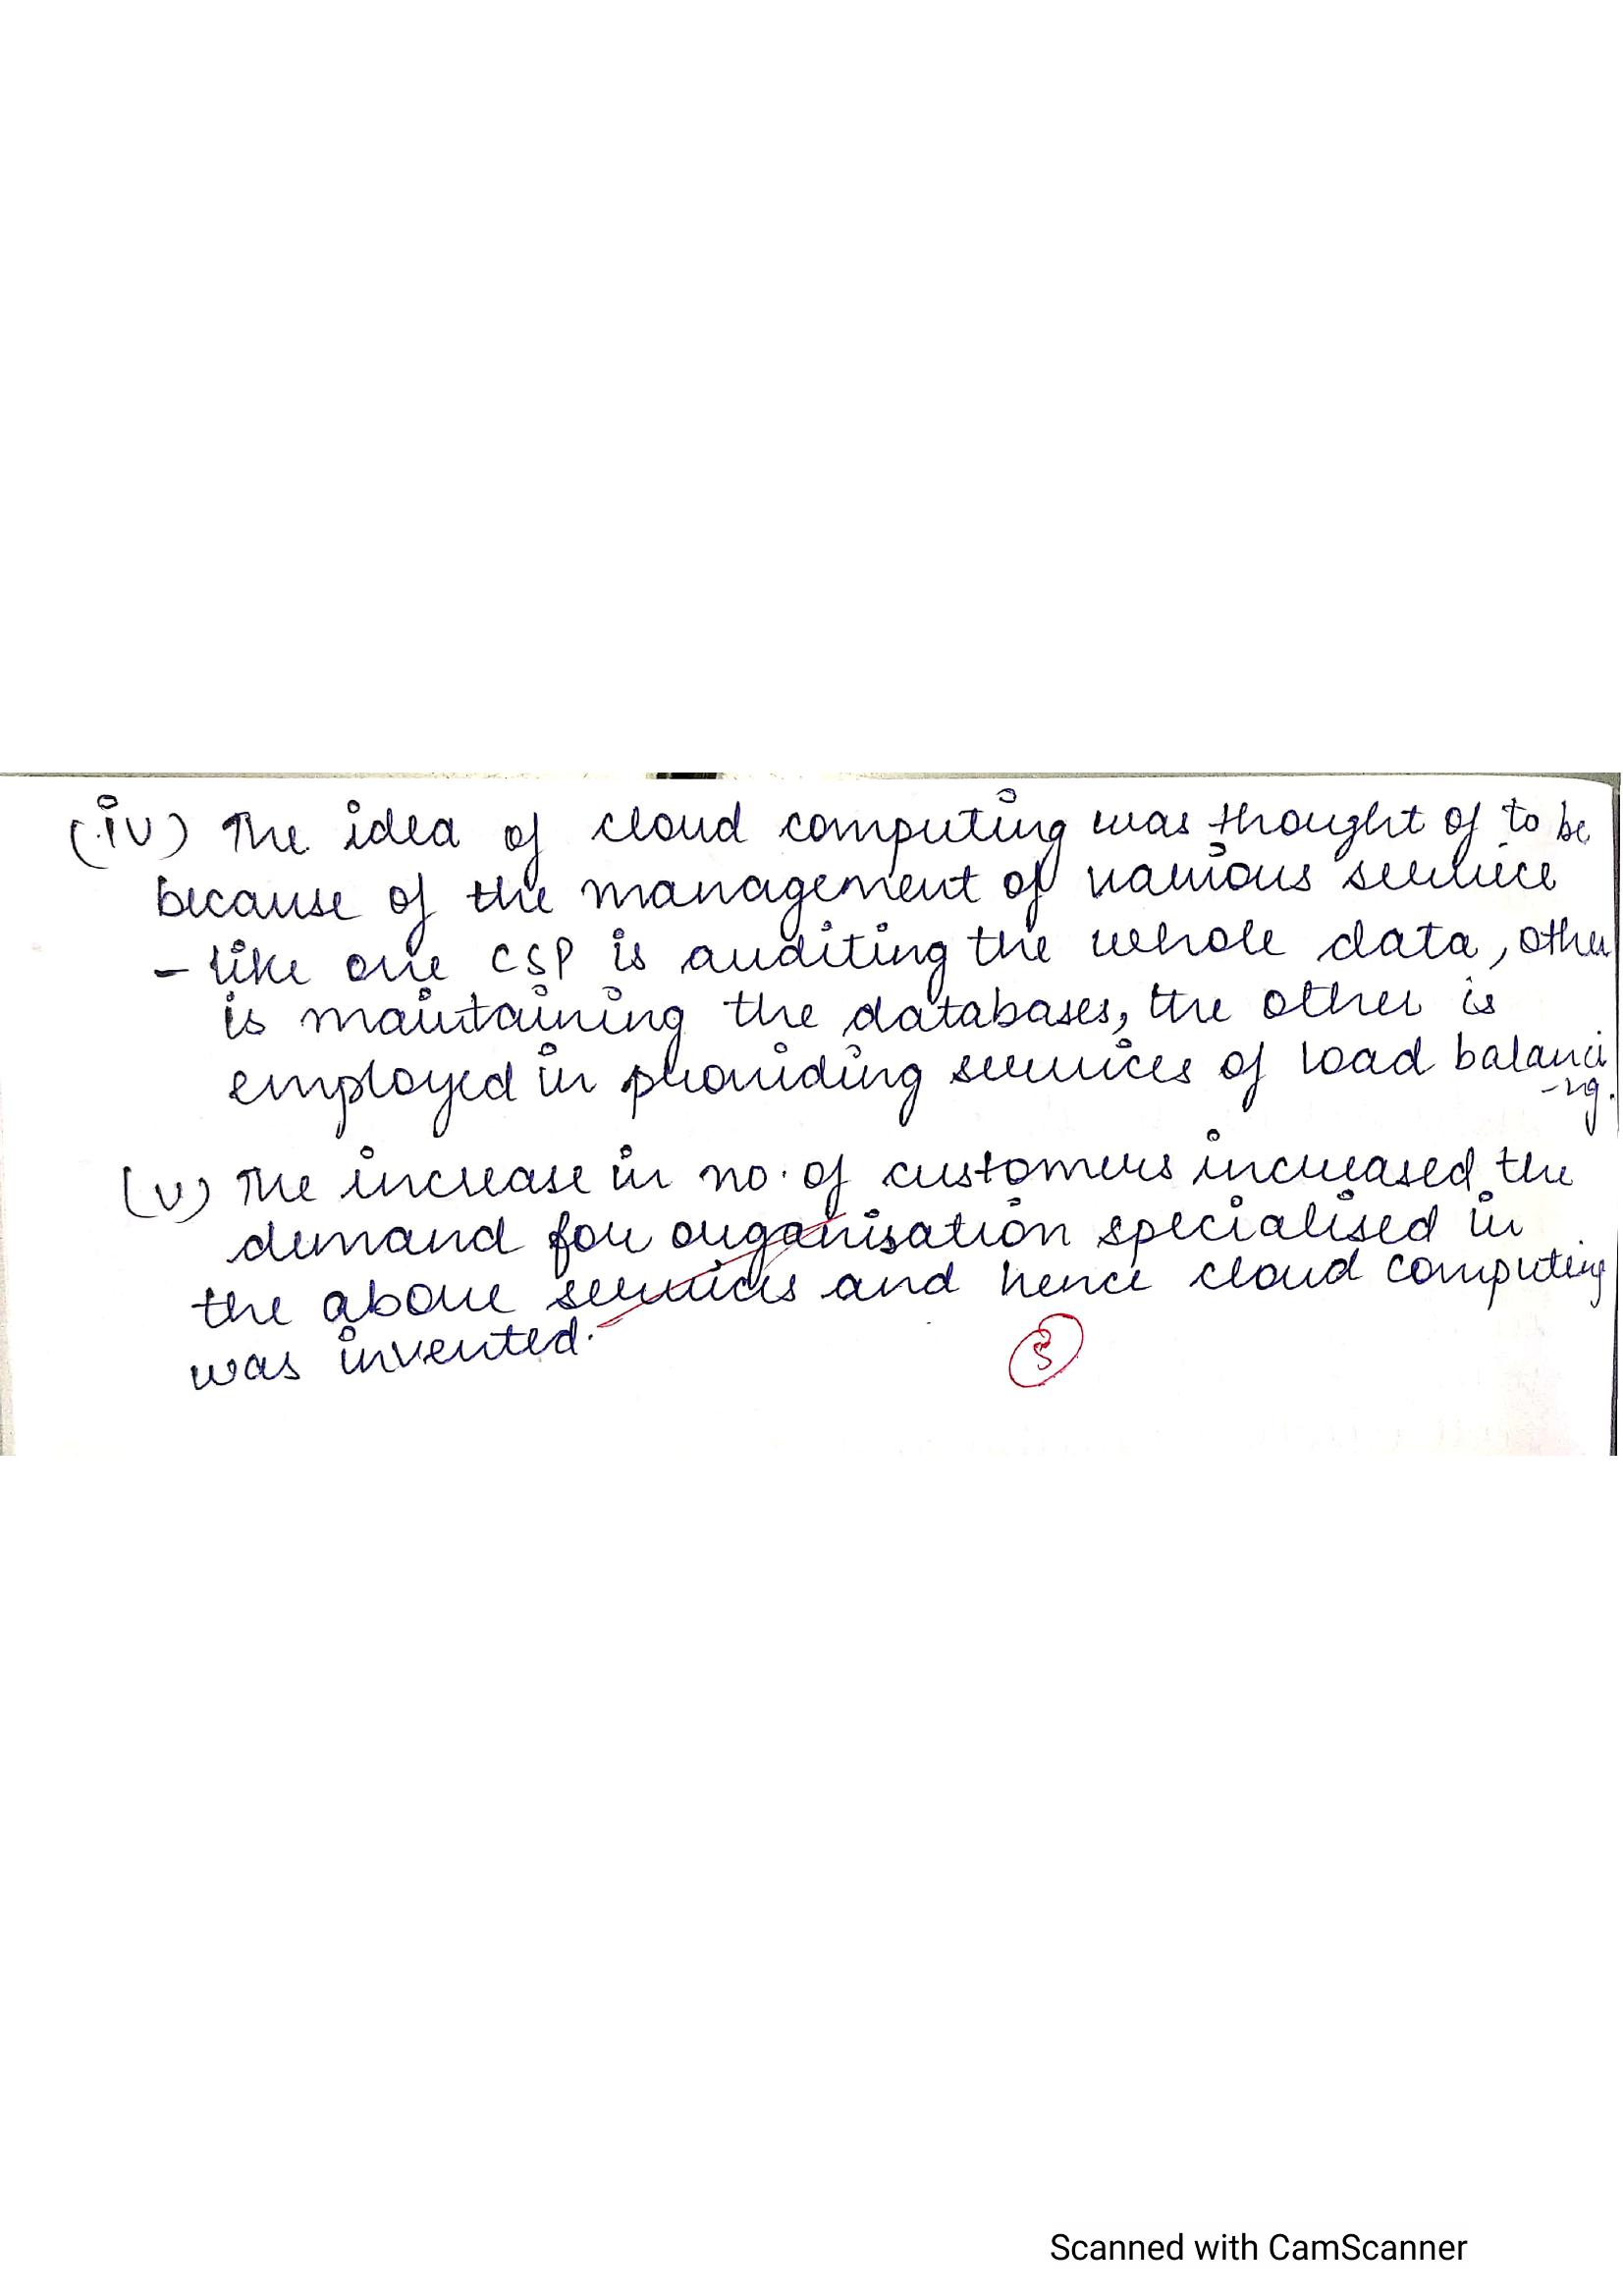 (iv) The idea of cloud computing was thought of to be
because of the management of various service
- like one CSP is auditing the whole data, other
is maintaining the databases, the other is
employed in providing services of load balanci
-ng.
(v) The increase in no. of customers increased the
demand for organisation specialised in
the above services and hence cloud computing
was invented.
Scanned with CamScanner